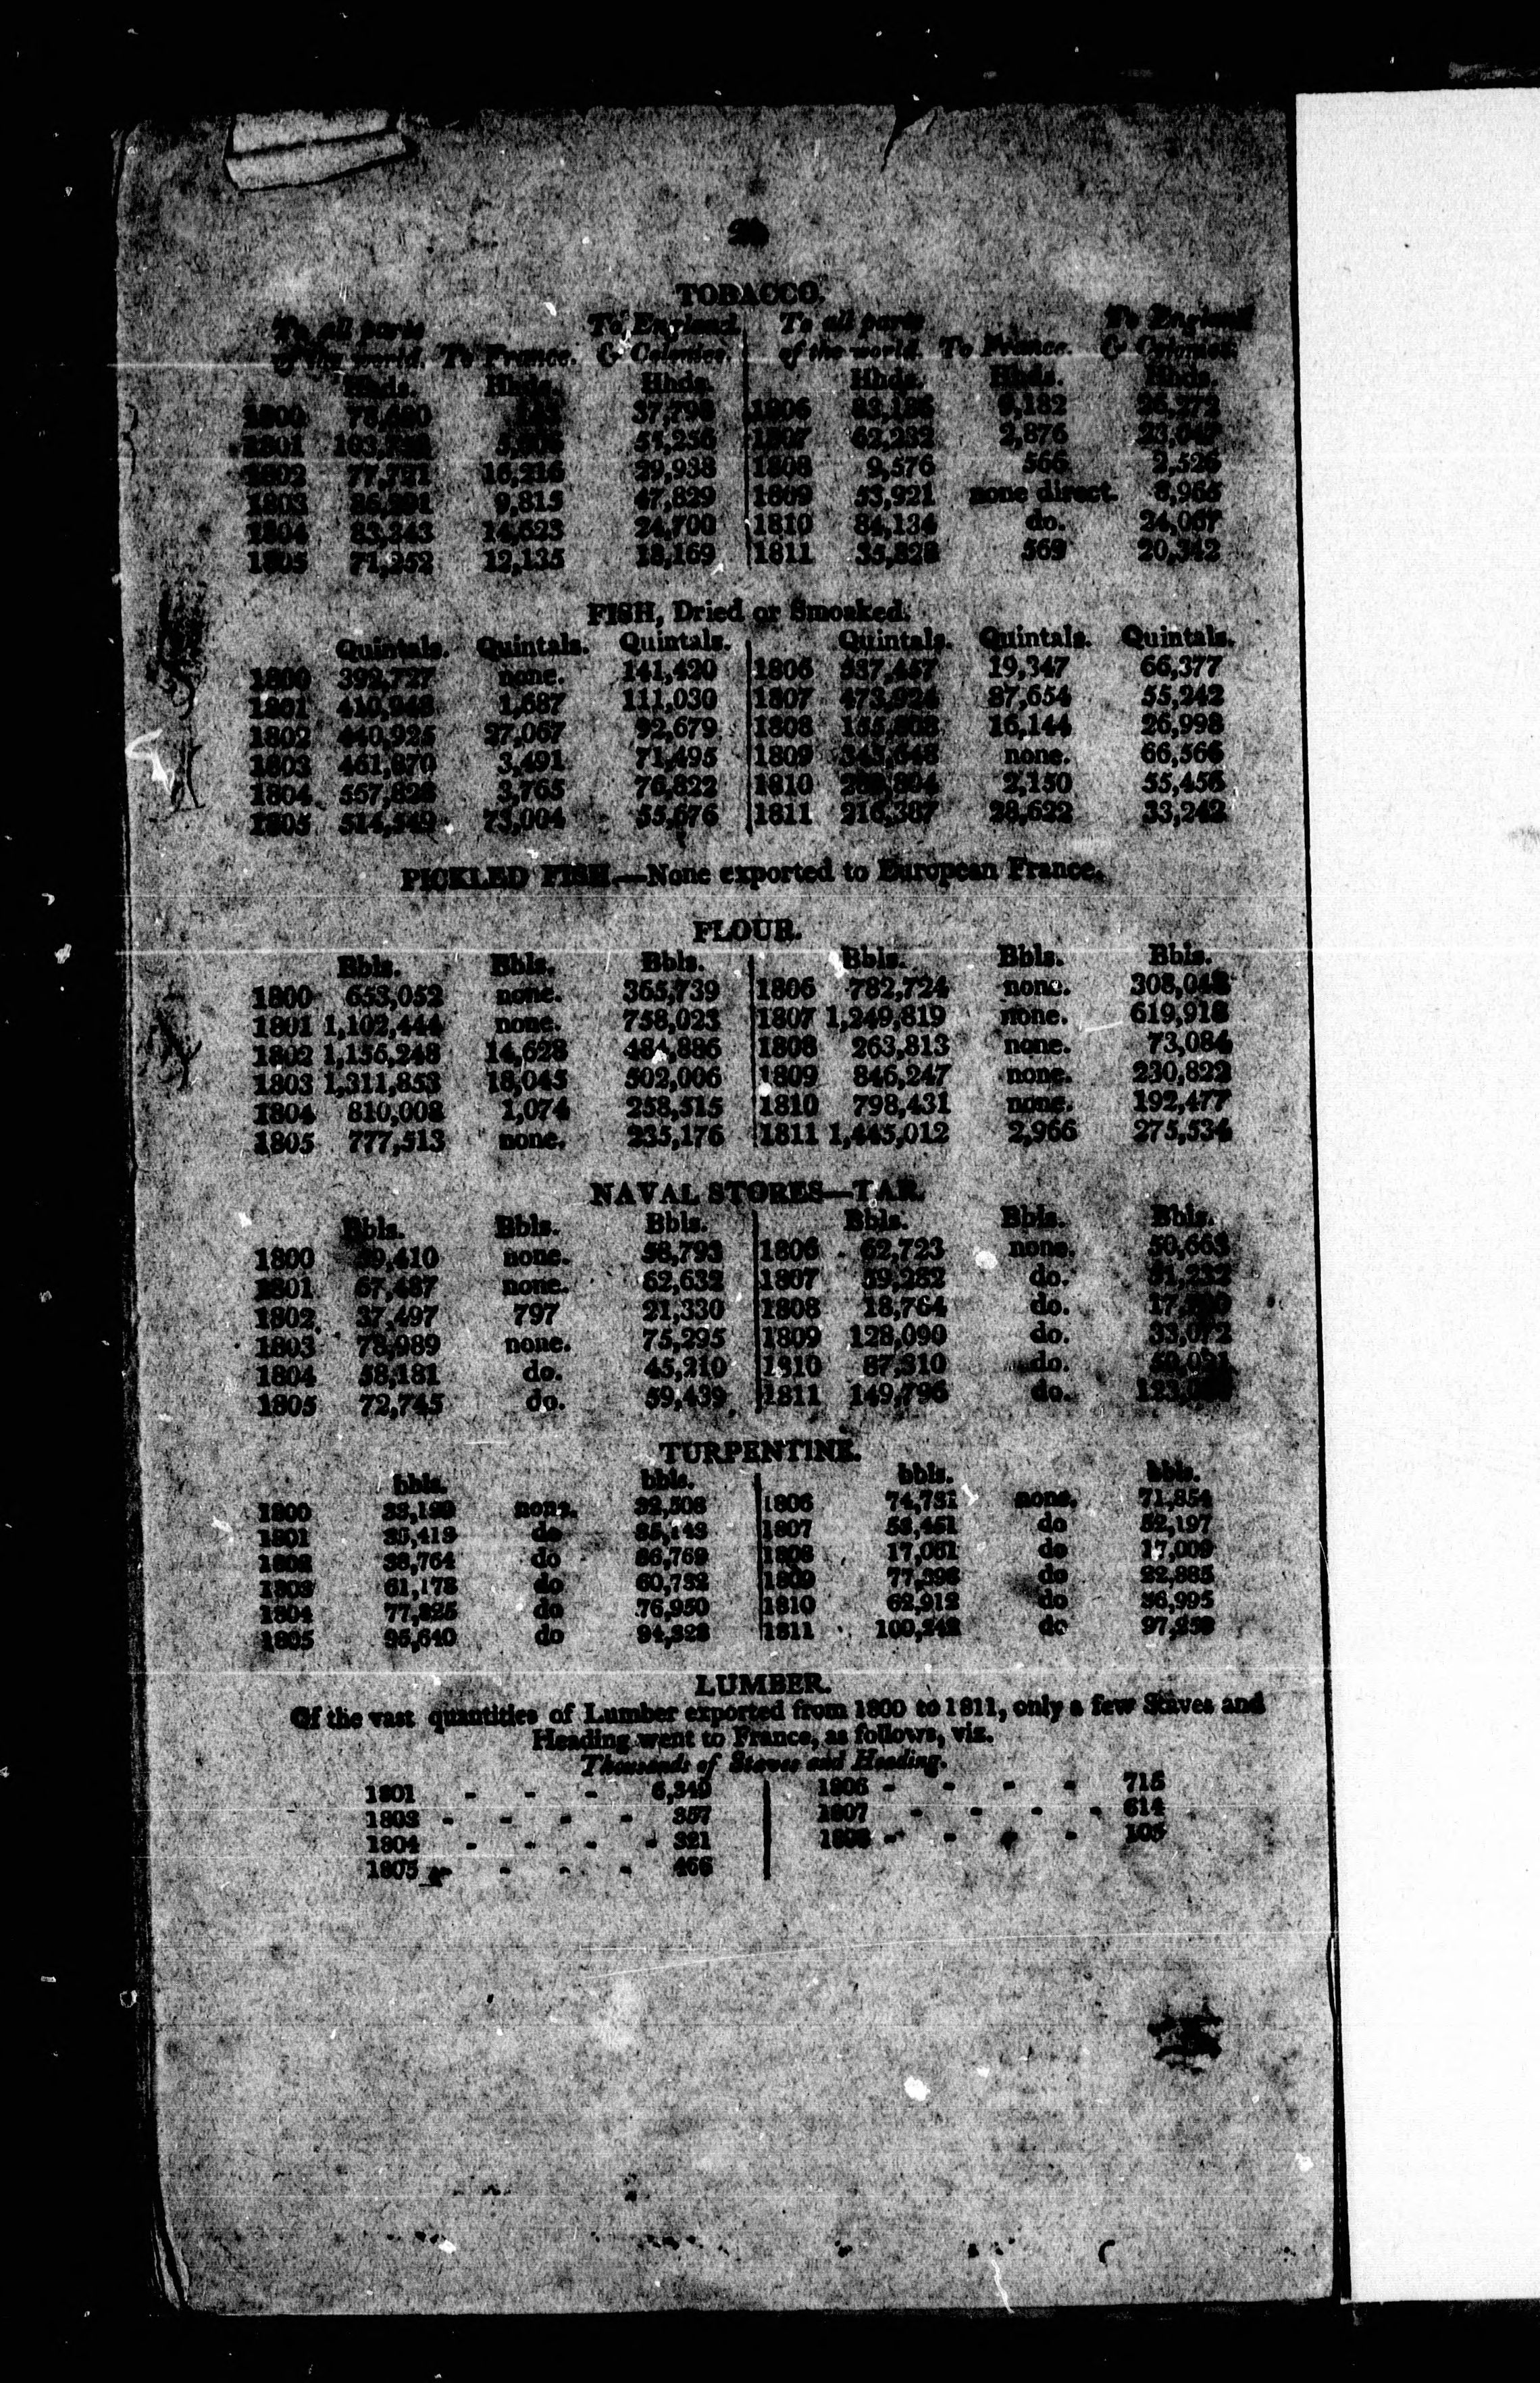 TOBACCO.
To all parts To England To all parts To England
of the world. To France. & Colonies. of the world. To France. & Colonies.
Hhds. Hhds. Hhds. Hhds. Hhds. Hhds.
1800 37,798 1806 9,182
1801 1807 62,232 2,876
1802 77,721 16,216 29,938 1808 9,576 566 2,526
1803 9,815 47,829 1809 53,921 none direct. 8,965
1804 83,343 14,623 24,700 1810 84,134 do. 24,067
1805 71,252 12,135 18,169 1811 35,828 569 20,342
FISH, Dried or Smoaked.
Quintals. Quintals. Quintals. Quintals. Quintals. Quintals.
1800 392,727 none. 141,420 1806 537,457 19,347 66,377
1801 410,948 1,687 111,030 1807 473,924 87,654 55,242
1802 440,925 27,067 92,679 1808 16,144 26,998
1803 461,870 3,491 71,495 1809 343,648 none. 66,566
1804 557,828 3,765 76,822 1810 2,150 55,456
1805 514,549 73,004 55,676 1811 216,387 28,622 33,242
PICKLED FISH.—None exported to European France.
FLOUR.
Bbls. Bbls. Bbls. Bbls. Bbls. Bbls.
1800 653,052 none. 365,739 1806 782,724 none. 308,048
1801 1,102,444 none. 758,023 1807 1,249,819 none. 619,918
1802 1,156,248 14,628 484,886 1808 263,813 none. 73,084
1803 1,311,853 18,045 502,006 1809 846,247 none. 230,822
1804 810,008 1,074 258,515 1810 798,431 none. 192,477
1805 777,513 none. 235,176 1811 1,445,012 2,966 275,534
NAVAL STORES—TAR.
Bbls. Bbls. Bbls. Bbls. Bbls. Bbls.
1800 59,410 none. 58,793 1806 62,723 none. 50,663
1801 67,487 none. 62,632 1807 59,282 do. 51,232
1802 37,497 797 21,330 1808 18,764 do.
1803 78,989 none. 75,295 1809 128,090 do. 33,072
1804 58,181 do. 45,210 1810 87,310 do. 50,021
1805 72,745 do. 59,439 1811 149,796 do.
TURPENTINE.
bbls. bbls. bbls. bbls.
1800 33,129 none. 32,508 1806 74,731 none. 71,854
1801 35,413 do 35,143 1807 53,451 do 52,197
1802 38,764 do 36,769 1808 17,061 do 17,009
1803 61,178 do 60,732 1809 77,398 do 22,885
1804 77,825 do 76,950 1810 62,912 do 36,995
1805 95,640 do 94,328 1811 100,242 do 97,250
LUMBER.
Of the vast quantities of Lumber exported from 1800 to 1811, only a few Staves and
Heading went to France, as follows, viz.
Thousands of Staves and Heading.
1801 - - - 6,349 1806 - - - - 715
1803 - - - - 357 1807 - - - - 614
1804 - - - - 321 1808 - - - - 105
1805 - - - 466